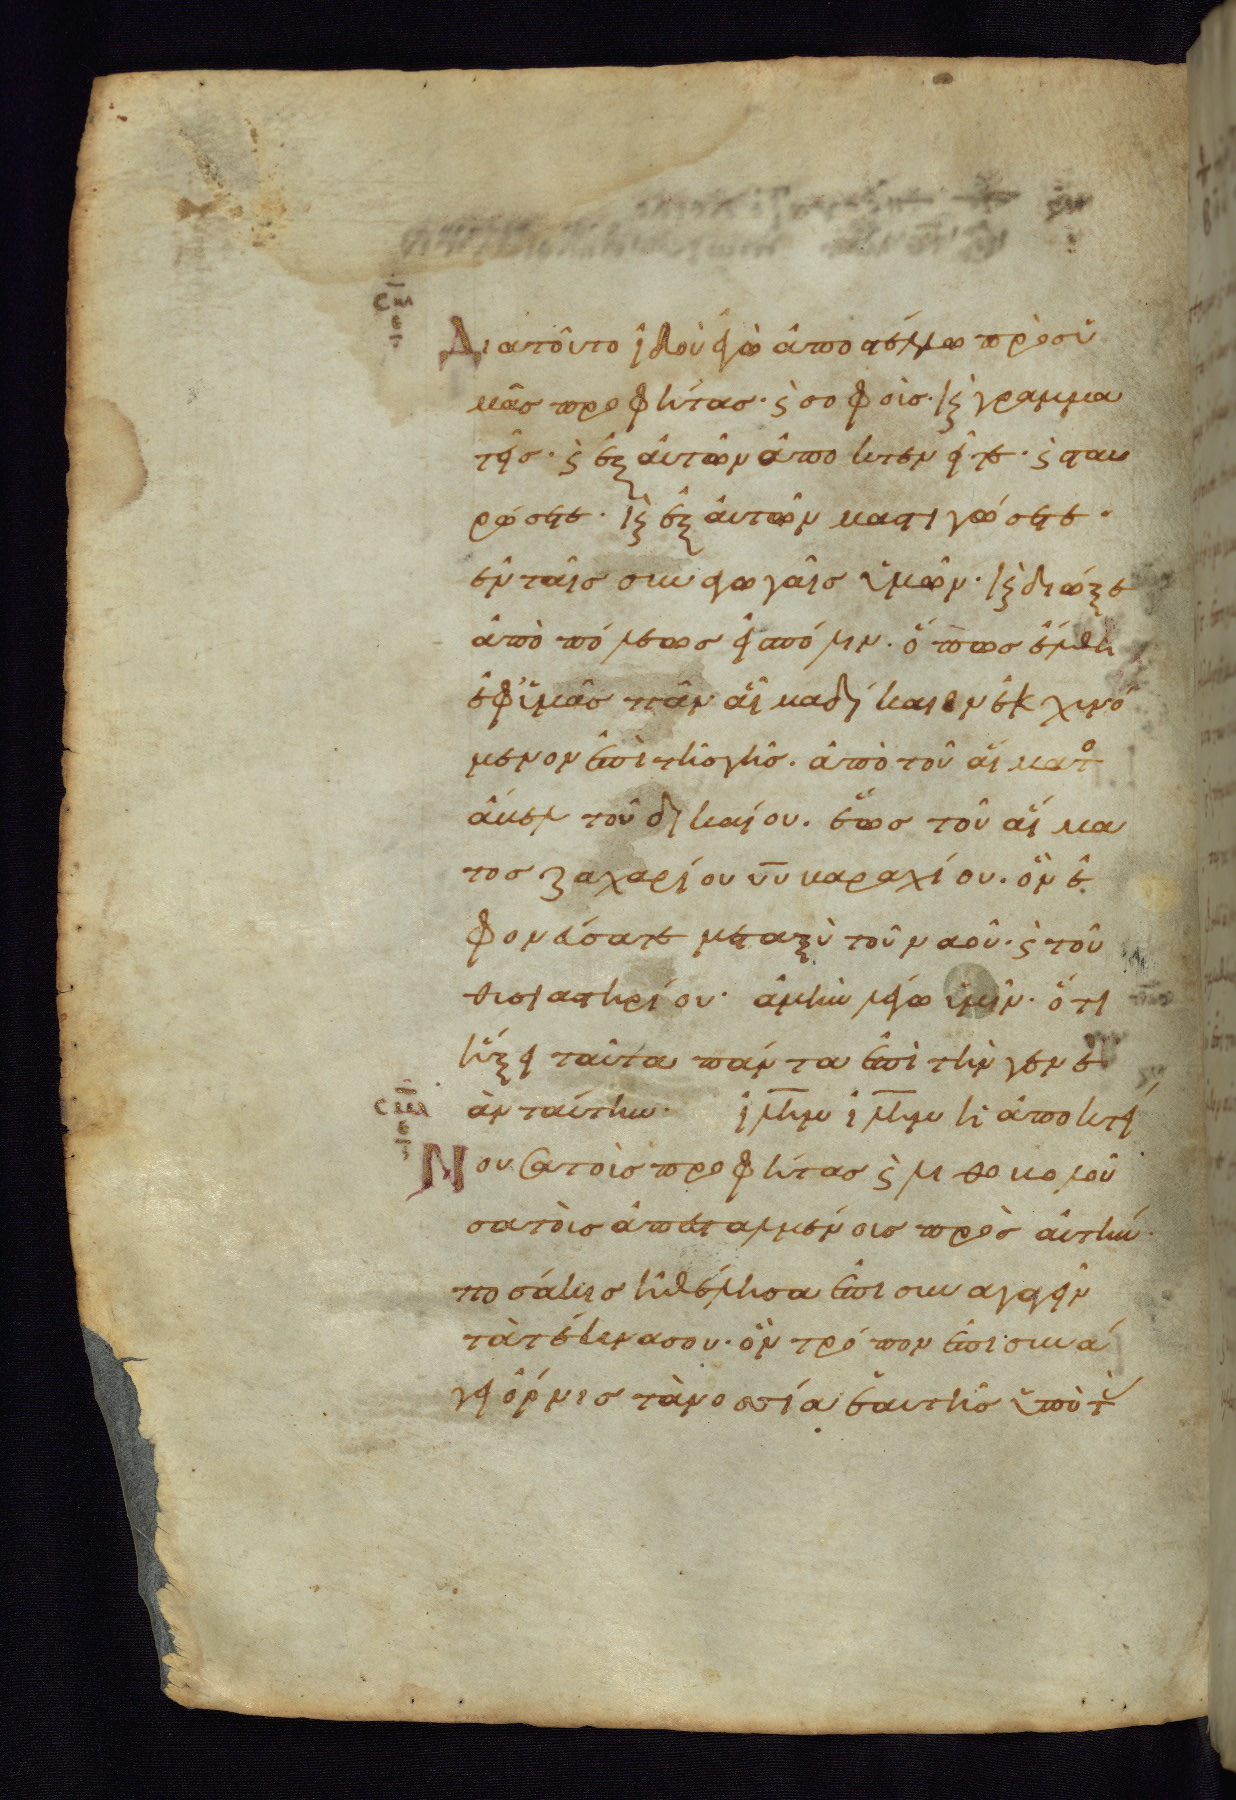 Διατοῦτο ἰδοὺ ἐγὼ ἀποστέλλω πρὸς ὑ
μᾶς προφήτας· ϗ σοφοὶς· ϗ γραμμα
τεῖς· ϗ ἐξ αὐτῶν ἀποκτενεῖτε· ϗ σταυ
ρώσετε· ϗ ἐξ αὐτῶν μαστιγώσετε·
ἐν ταῖς συναγωγαῖς ὑμῶν· ϗ διώξετε
ἀπὸ πόλεως εἰ πόλιν· ὅπως ἔλθη
ἐφ' ὑμᾶς πᾶν αἷμα δίκαιον ἐκχυνό
μενον ἐπὶ τῆς γῆς· ἀπὸ τοῦ αἵματο
ἄβελ τοῦ δικαίου· ἕως τοῦ αἵμα
τος ζαχαρίου υ̅υ̅ βαραχίου· ὃν ἐ
φονεύσατε μεταξὺ τοῦ ναοῦ· ϗ τοῦ
θυσιαστηρίου· ἀμὴν λέγω ὑμῖν· ὅτι
ἥξει ταῦτα πάντα ἐπὶ τὴν γενε
ὰν ταύτην· ἰλημ ἰλημ ἡ ἀποκτεί
Νουσα τοὶς προφήτας ϗ λιθοβολοῦ
σα τοὶς ἀπεσταλμένοις πρὸς αὐτήν·
ποσάκις ἠθέλησα ἐπισυναγαγεῖν
τὰ τέκνα σου· ὃν τρόπον ἐπισυνά
γει ὄρνις τὰ νοσσία ἑαυτῆς ὑπὸ τ